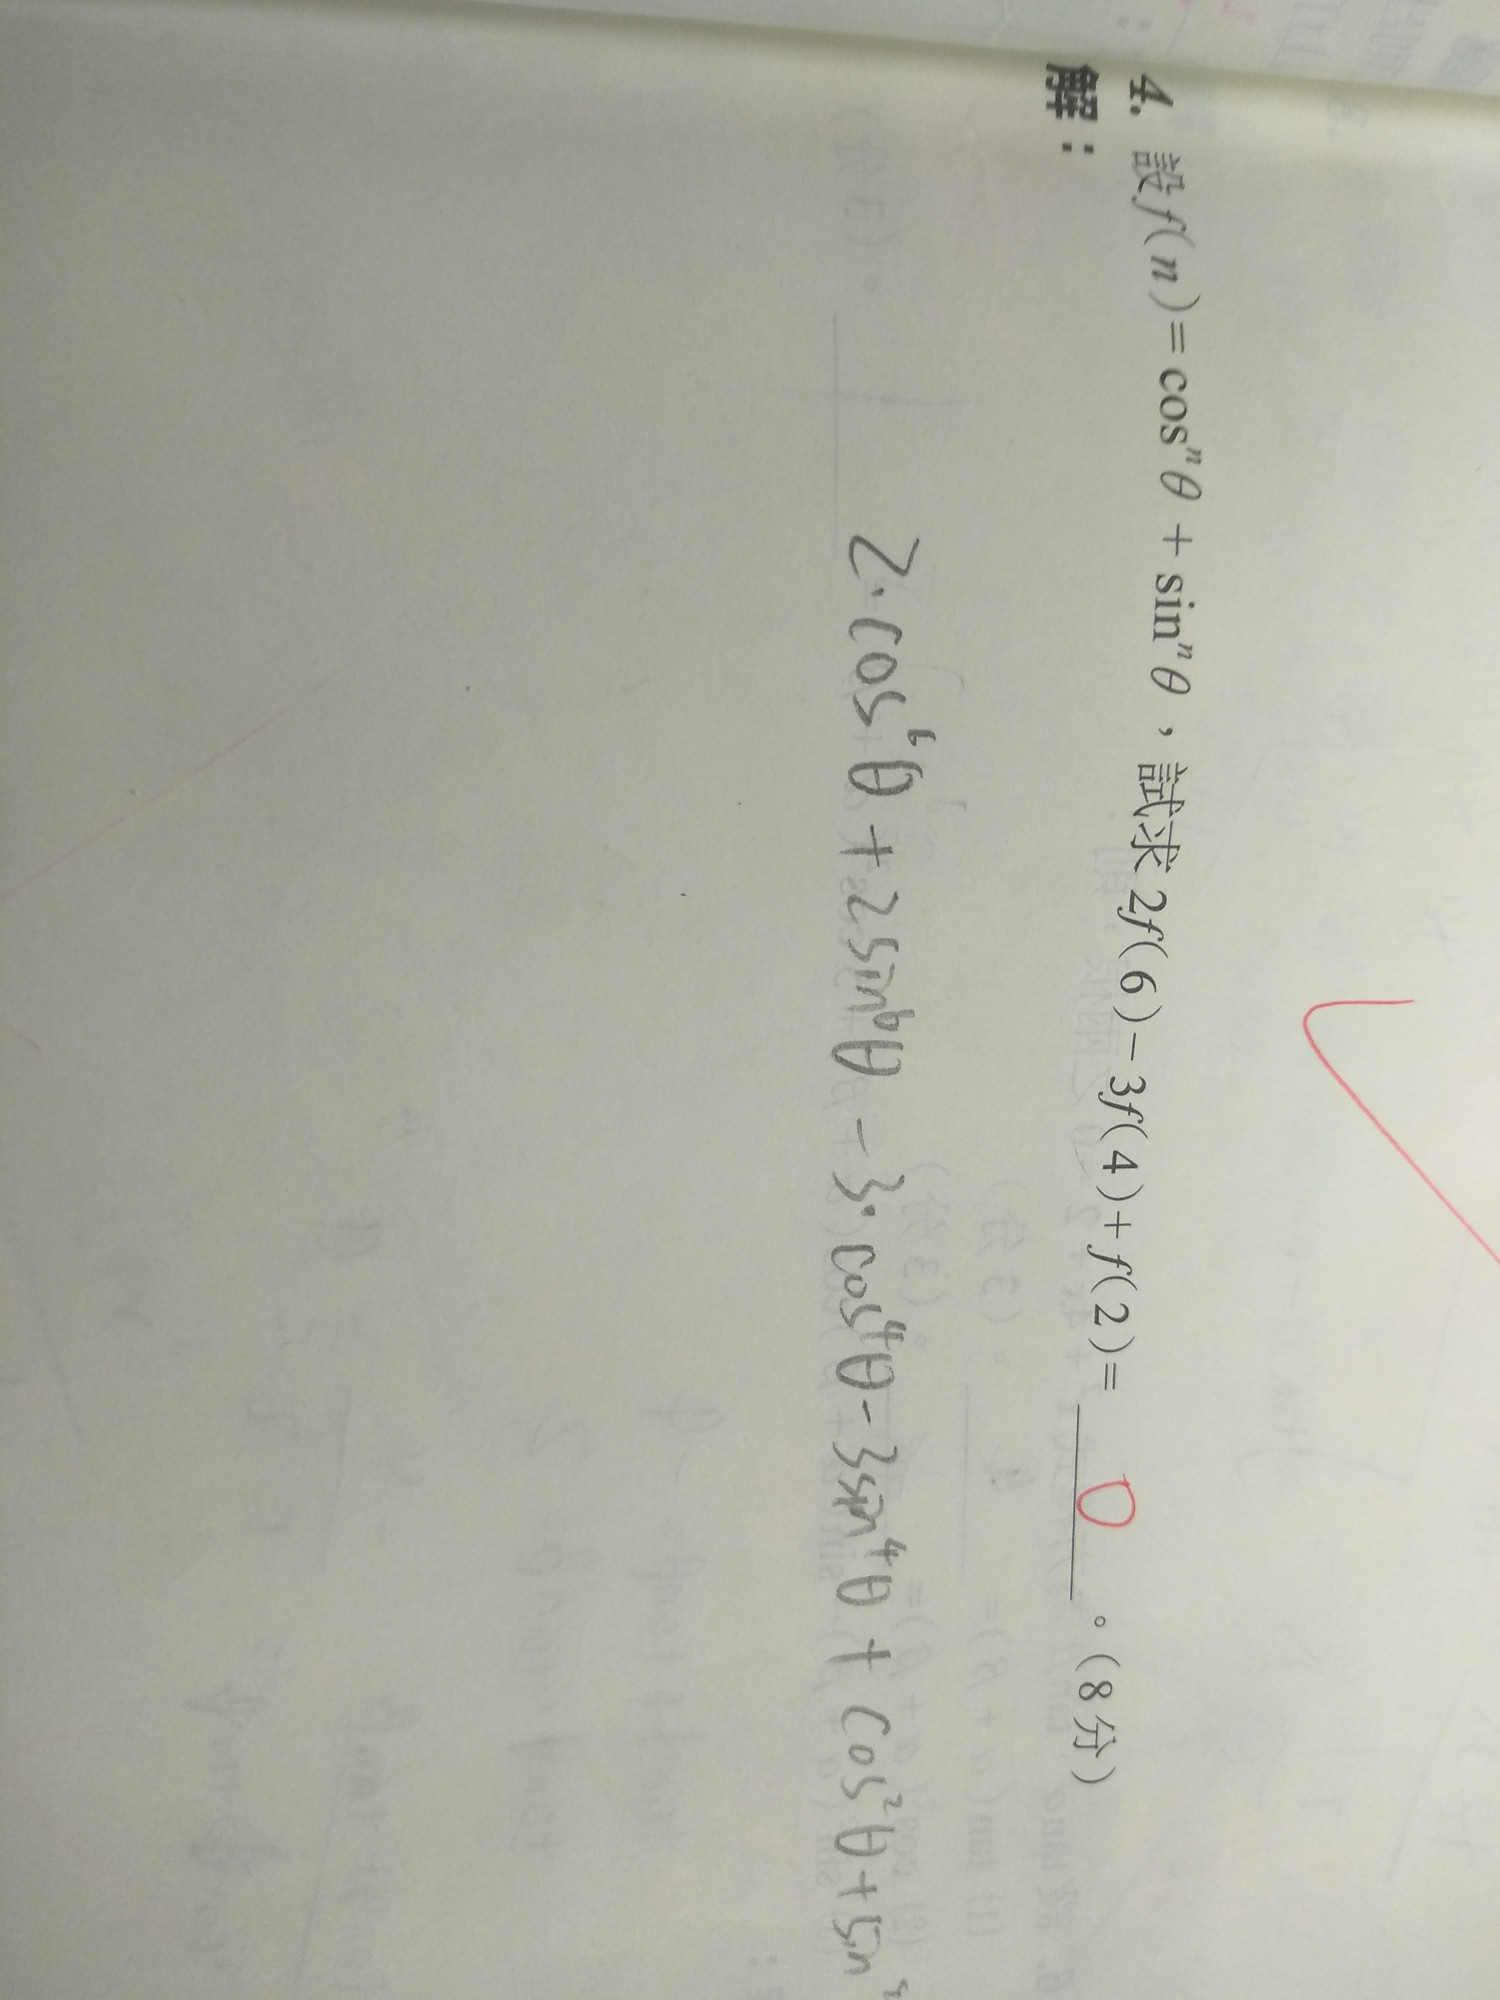 4. 設f(n)=cosⁿθ+sinⁿθ，試求2f(6)-3f(4)+f(2)= 0 。(8分)
解：
2·cos⁶θ+2sin⁶θ-3·cos⁴θ-3sin⁴θ+cos²θ+sin²